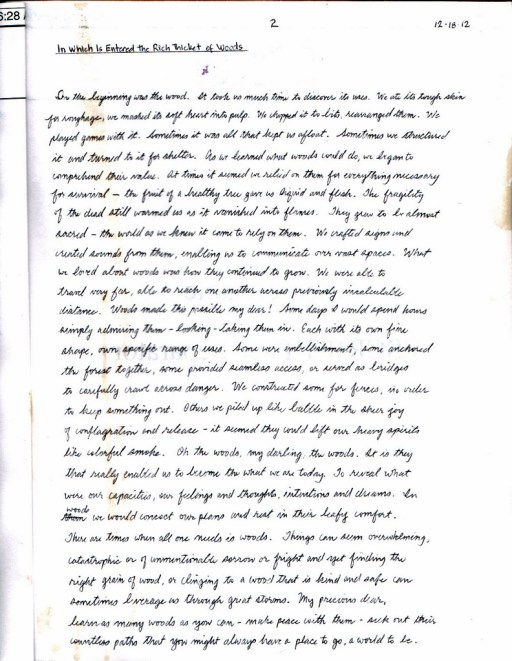 6:28
2
12-18-12
In Which Is Entered the Rich Thicket of Woods
In the beginning was the wood. It took us much time to discover its uses. We ate its tough skin
for roughage, we mashed its soft heart into pulp. We chopped it to bits, rearranged them. We
played games with it. Sometimes it was all that kept us afloat. Sometimes we structured
it and turned to it for shelter. As we learned what woods could do, we began to
comprehend their value. At times it seemed we relied on them for everything necessary
for survival – the fruit of a healthy tree gave us liquid and flesh. The fragility
of the dead still warmed us as it vanished into flames. They grew to be almost
sacred – the world as we knew it came to rely on them. We crafted signs and
created sounds from them, enabling us to communicate over vast spaces. What
we loved about woods was how they continued to grow. We were able to
travel very far, able to reach one another across previously incalculable
distance. Woods made this possible my dear! Some days I would spend hours
simply admiring them – looking – taking them in. Each with its own fine
shape, own specific range of uses. Some were embellishments, some anchored
the forest together, some provided seamless access, or served as bridges
to carefully crawl across danger. We constructed some for fences, in order
to keep something out. Others we piled up like bubble in the sheer joy
of conflagration and release – it seemed they could lift our heavy spirits
like colorful smoke. Oh the woods, my darling, the woods. It is they
that really enabled us to become the what we are today. To reveal what
were our capacities, our feelings and thoughts, intentions and dreams. In
woods
them we would concoct our plans and rest in their leafy comfort.
There are times when all one needs is woods. Things can seem overwhelming,
catastrophic or of unmentionable sorrow or fright and yet finding the
right grain of wood, or clinging to a wood that is kind and safe can
sometimes leverage us through great storms. My precious dear,
learn as many woods as you can – make peace with them – seek out their
countless paths that you might always have a place to go, a world to be.